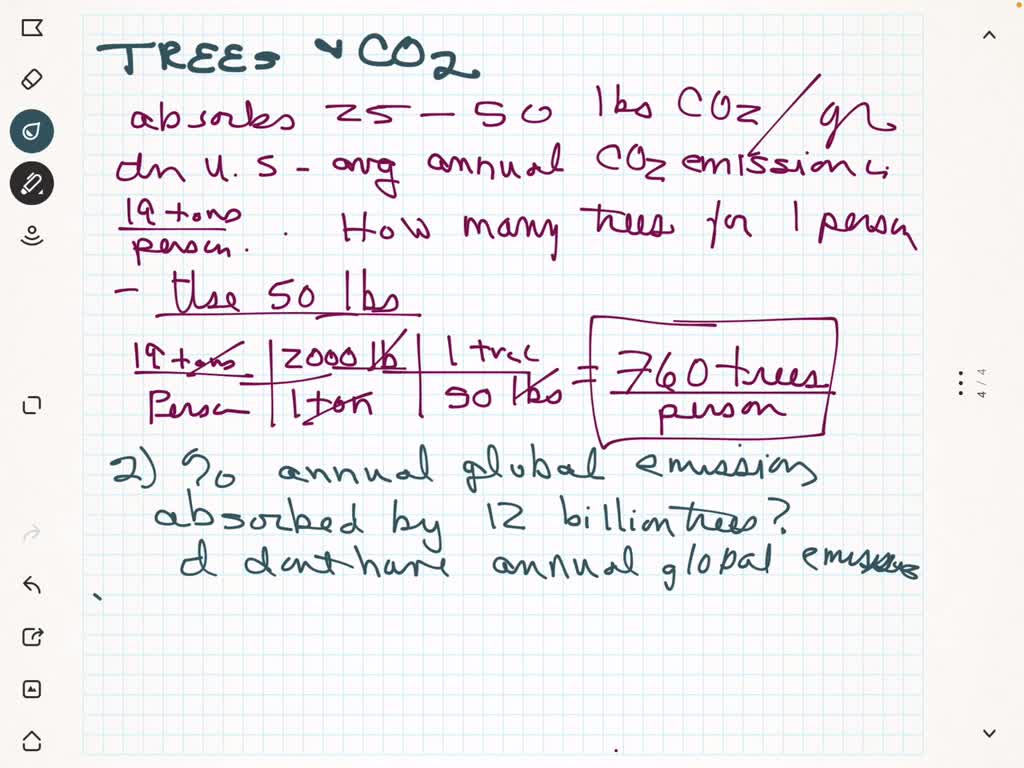 TREES & CO2
absorbs 25 - 50 lbs CO2 / yr
In U.S - avg annual CO2 emission is
19 tons
person. How many trees for 1 person
- Use 50 lbs
19 tons | 2000 lb | 1 tree = 760 trees
Person | 1 ton | 50 lbs person
2) % annual global emissions
absorbed by 12 billion trees?
I dont have annual global emissions
4 / 4